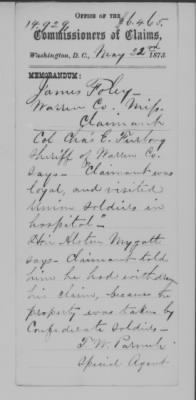 OFFICE OF THE
14,929 $6,465.
Commissioners of Claims,
Washington, D. C., May 22nd 1873
MEMORANDUM:
James Foley—
Warren Co. Miss.
Claimant
Col Chas E. Furlong
Sheriff of Warren Co.
says— "Claimant was
loyal, and visited
Union soldiers in
hospital"—
Hon Alston Mygatt
says— Claimant told
him he had withdrawn
his claim, because his
property was taken by
Confederate soldiers—
T. W. Parmele
Special Agent